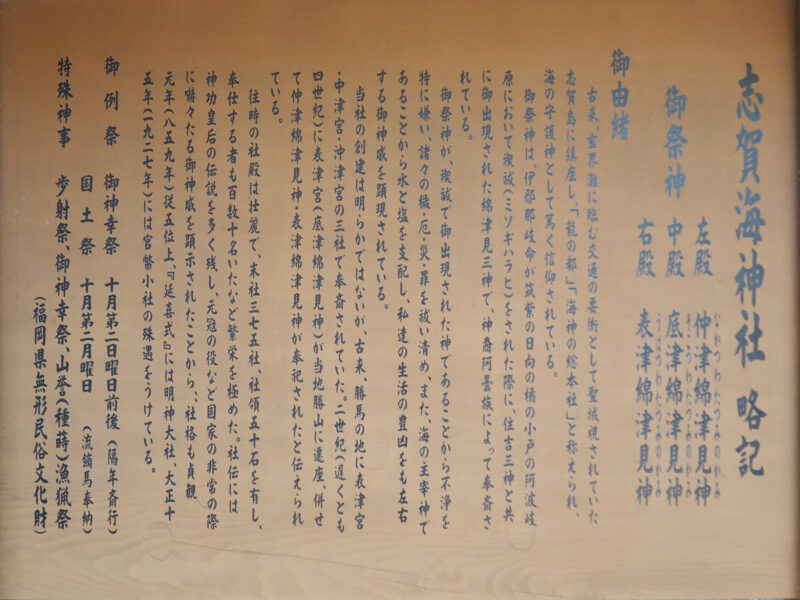 志賀海神社 略記
御祭神
左殿 仲津綿津見神
なかつわたつみのかみ
中殿 底津綿津見神
そこつわたつみのかみ
右殿 表津綿津見神
うはつわたつみのかみ
御由緒
古来、玄界灘に臨む交通の要衝として聖域視されていた
志賀島に鎮座し、「龍の都」「海神の総本社」と称えられ、
海の守護神として篤く信仰されている。
御祭神は、伊邪那岐命が筑紫の日向の橘の小戸の阿波岐
原において禊祓(ミソギハラヒ)をされた際に、住吉三神と共
に御出現された綿津見三神で、神裔阿曇族によって奉斎さ
れている。
御祭神が、禊祓で御出現された神であることから不浄を
特に嫌い、諸々の穢・厄・災・罪を祓い清め、また、海の主宰神で
あることから水と塩を支配し、私達の生活の豊凶をも左右
する御神威を顕現されている。
当社の創建は明らかではないが、古来、勝馬の地に表津宮
・中津宮・沖津宮の三社で奉斎されていた。二世紀(遅くとも
四世紀)に表津宮(底津綿津見神)が当地勝山に遷座、併せ
て仲津綿津見神・表津綿津見神が奉祀されたと伝えられ
ている。
往時の社殿は壮麗で、末社三七五社、社領五十石を有し、
奉仕する者も百数十名いたなど繁栄を極めた。社伝には
神功皇后の伝説を多く残し、元冠の役など国家の非常の際
に嚇々たる御神威を顕示されたことから、社格も貞観
元年(八五九年)従五位上、『延喜式』には明神大社、大正十
五年(一九二七年)には官幣小社の殊遇をうけている。
御例祭 御神幸祭 十月第二日曜日前後 (隔年斎行)
国土祭 十月第二月曜日 (流鏑馬奉納)
特殊神事 歩射祭・御神幸祭・山誉(種蒔)漁猟祭
(福岡県無形民俗文化財)